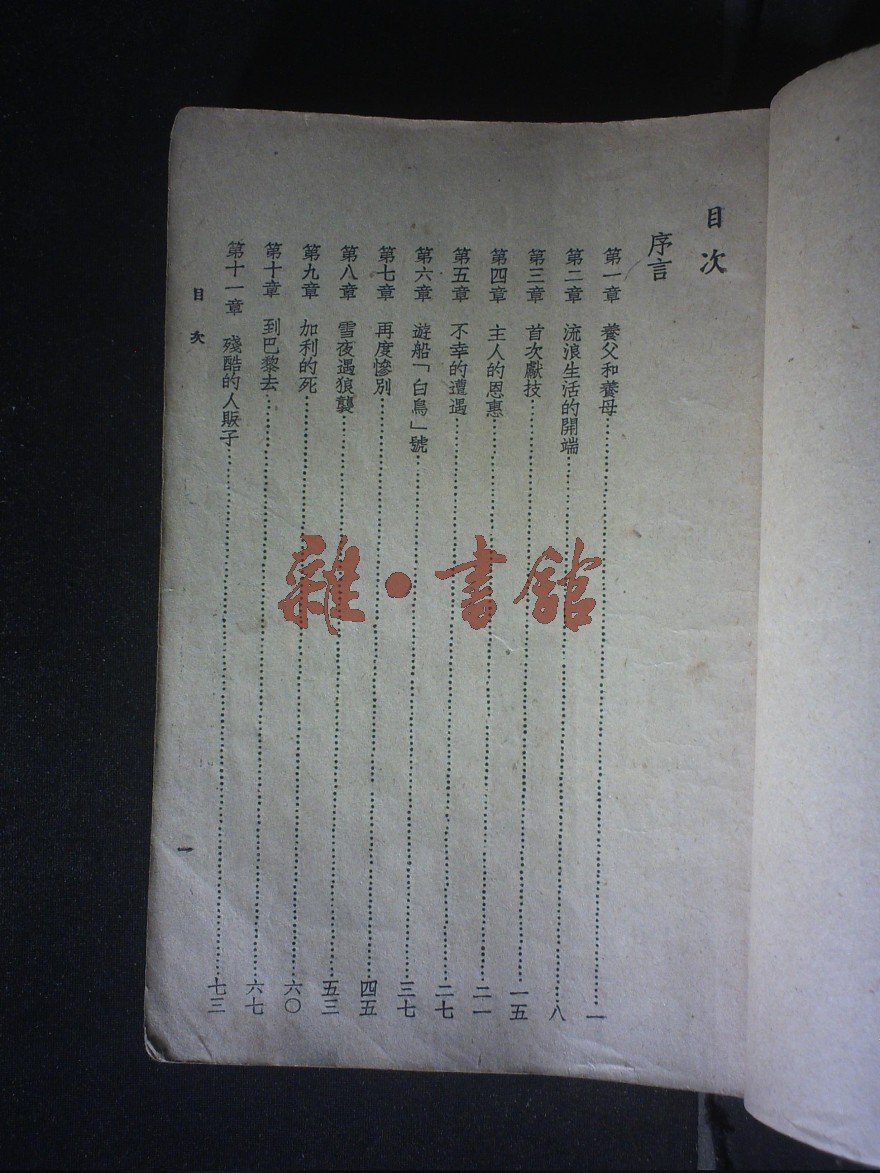 目次
序言
第一章 養父和養母……一
第二章 流浪生活的開端……八
第三章 首次獻技……一五
第四章 主人的恩惠……二一
第五章 不幸的遭遇……二七
第六章 遊船「白鳥」號……三七
第七章 再度慘別……四五
第八章 雪夜遇狼襲……五三
第九章 加利的死……六〇
第十章 到巴黎去……六七
第十一章 殘酷的人販子……七三
目次
一
雜·書館